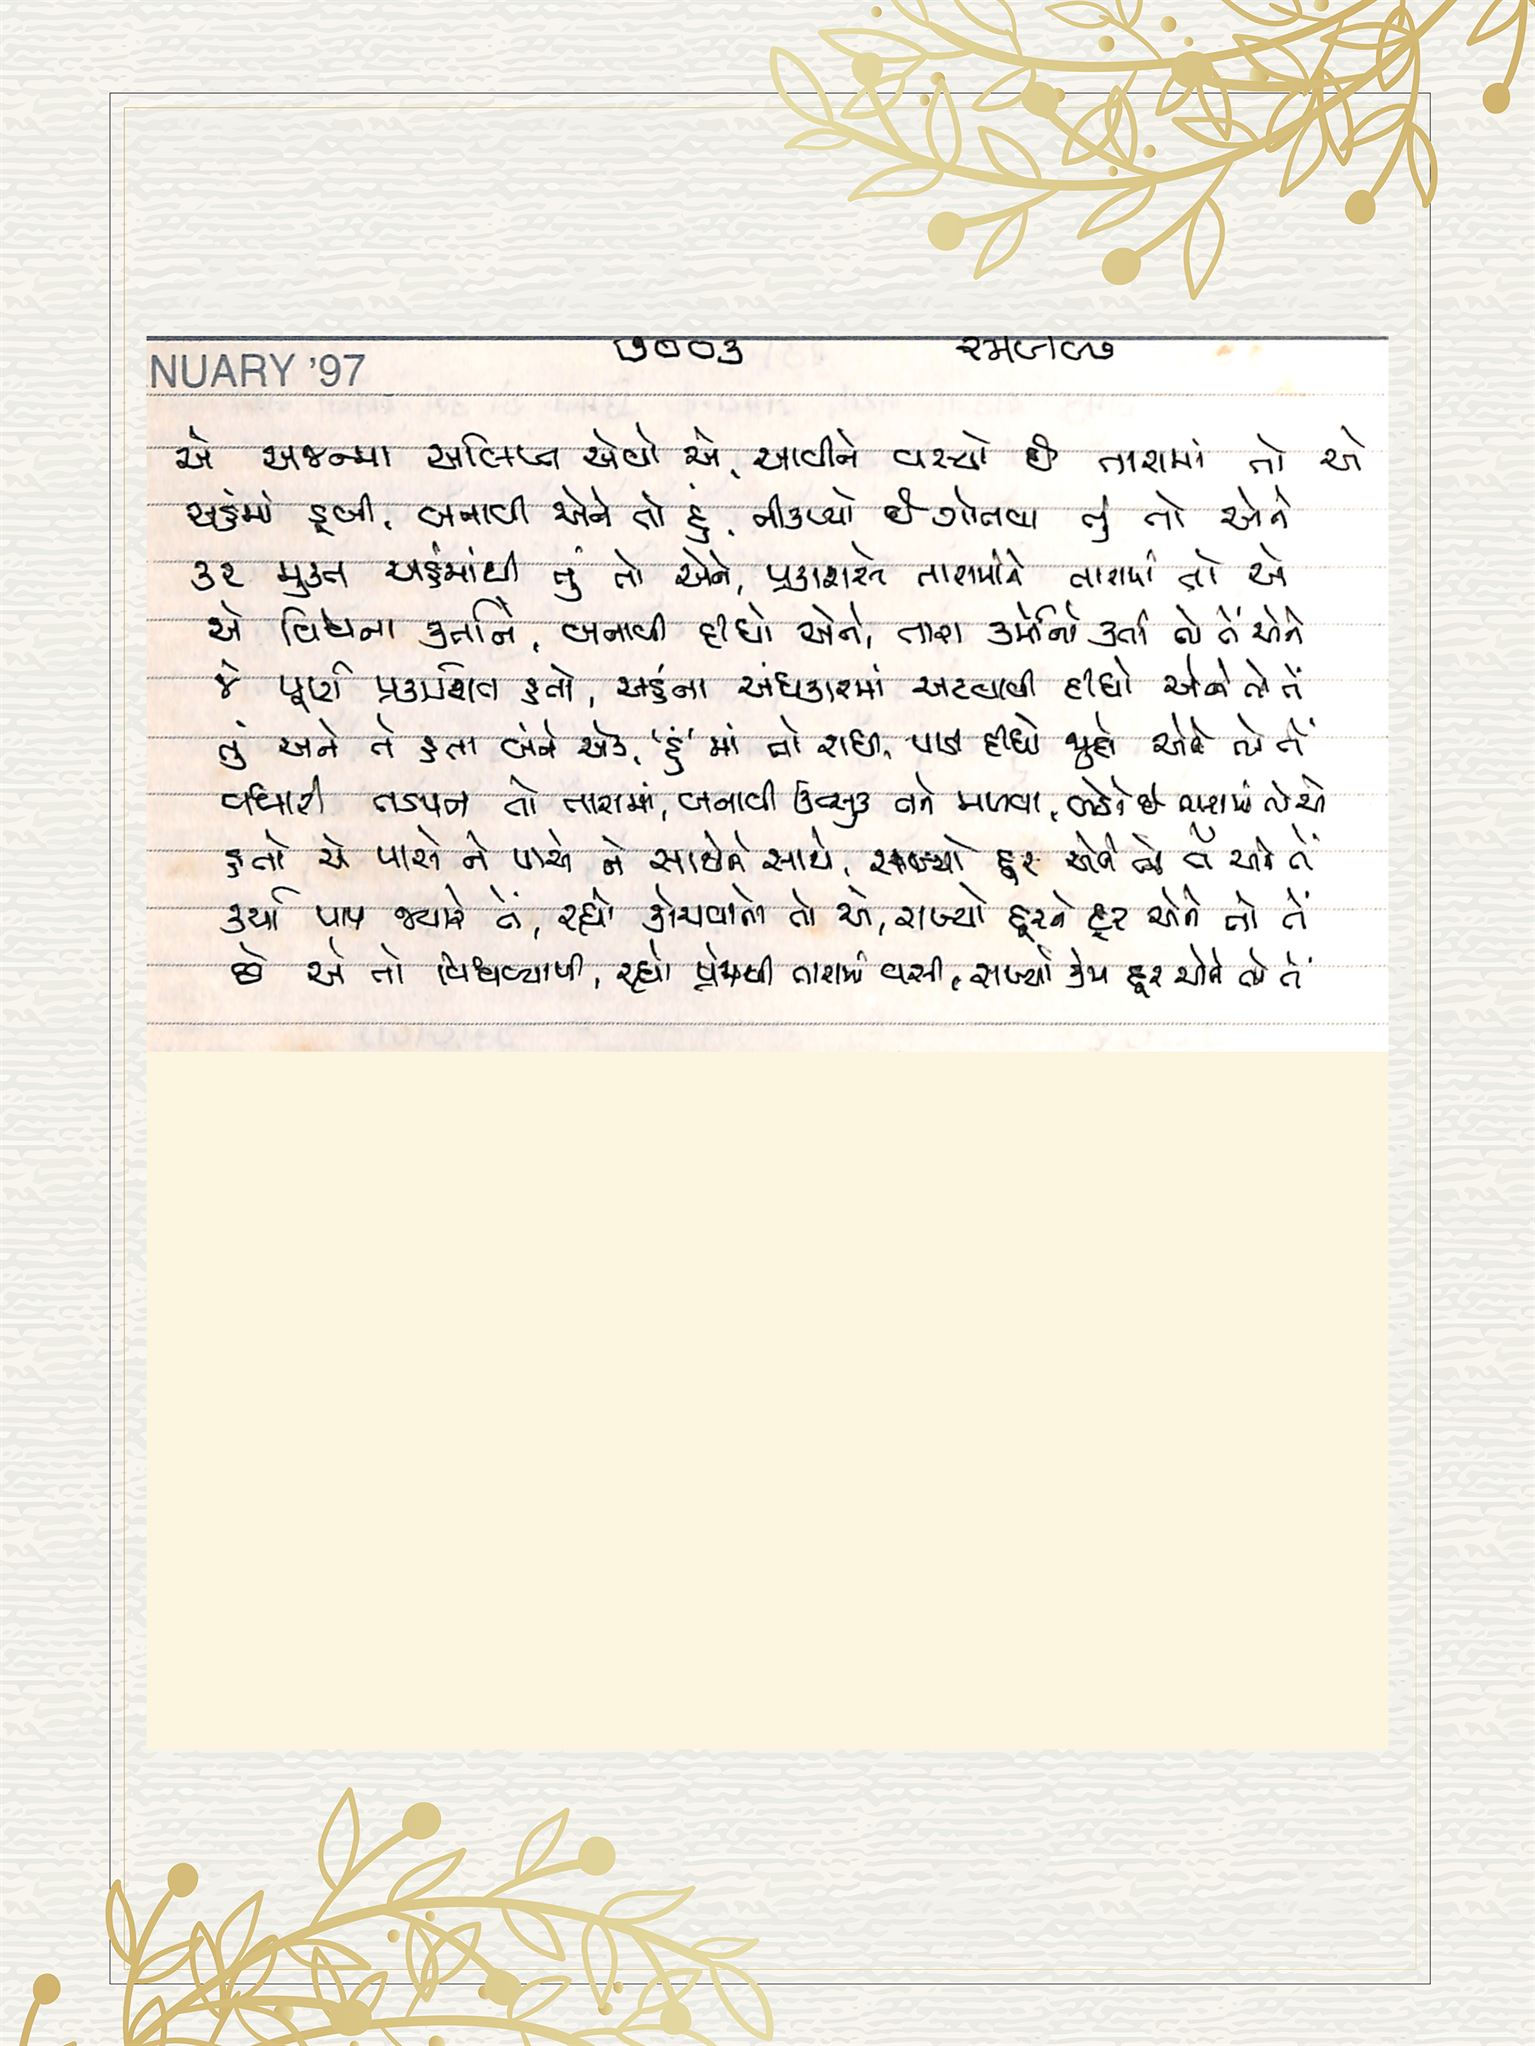 NUARY '97 ૭૦૦૩
એ અજન્મા અલિપ્ત એવો એ, આવીને વસ્યો છે તારામાં તો એ
અહંમાં ડૂબી, બનાવી એને તો હું, નીકળ્યો છે ગોતવા તું તો એને
કર મુક્ત અહંમાંથી તું તો એને, પ્રકાશશે તારામાંને તારામાં તો એ
એ વિશ્વના કર્તાને, બનાવી દીધો એને, તારા કર્મોનો કર્તા તો તેં એને
જે પૂર્ણ પ્રકાશિત હતો, અહંના અંધકારમાં અટવાવી દીધો એને તો તેં
તું અને તે હતા બંને એક, 'હું' માં તો રાચી, પાડી દીધો જુદો એને તો તેં
વધારી તડપન તો તારામાં, બનાવી ઉત્સુક તને મળવા, છે તારામાં તો એ
હતો એ પાસે ને પાસે ને સાથેને સાથે, રાખ્યો દૂર એને તો તેં
કર્યા પાપ જ્યારે તેં, રહ્યો કોચવાતો તો એ, રાખ્યો દૂરને દૂર એને તો તેં
છે એ તો વિશ્વવ્યાપી, રહ્યો પ્રેમથી તારામાં વસી, રાખ્યો કેમ દૂર એને તો તેં